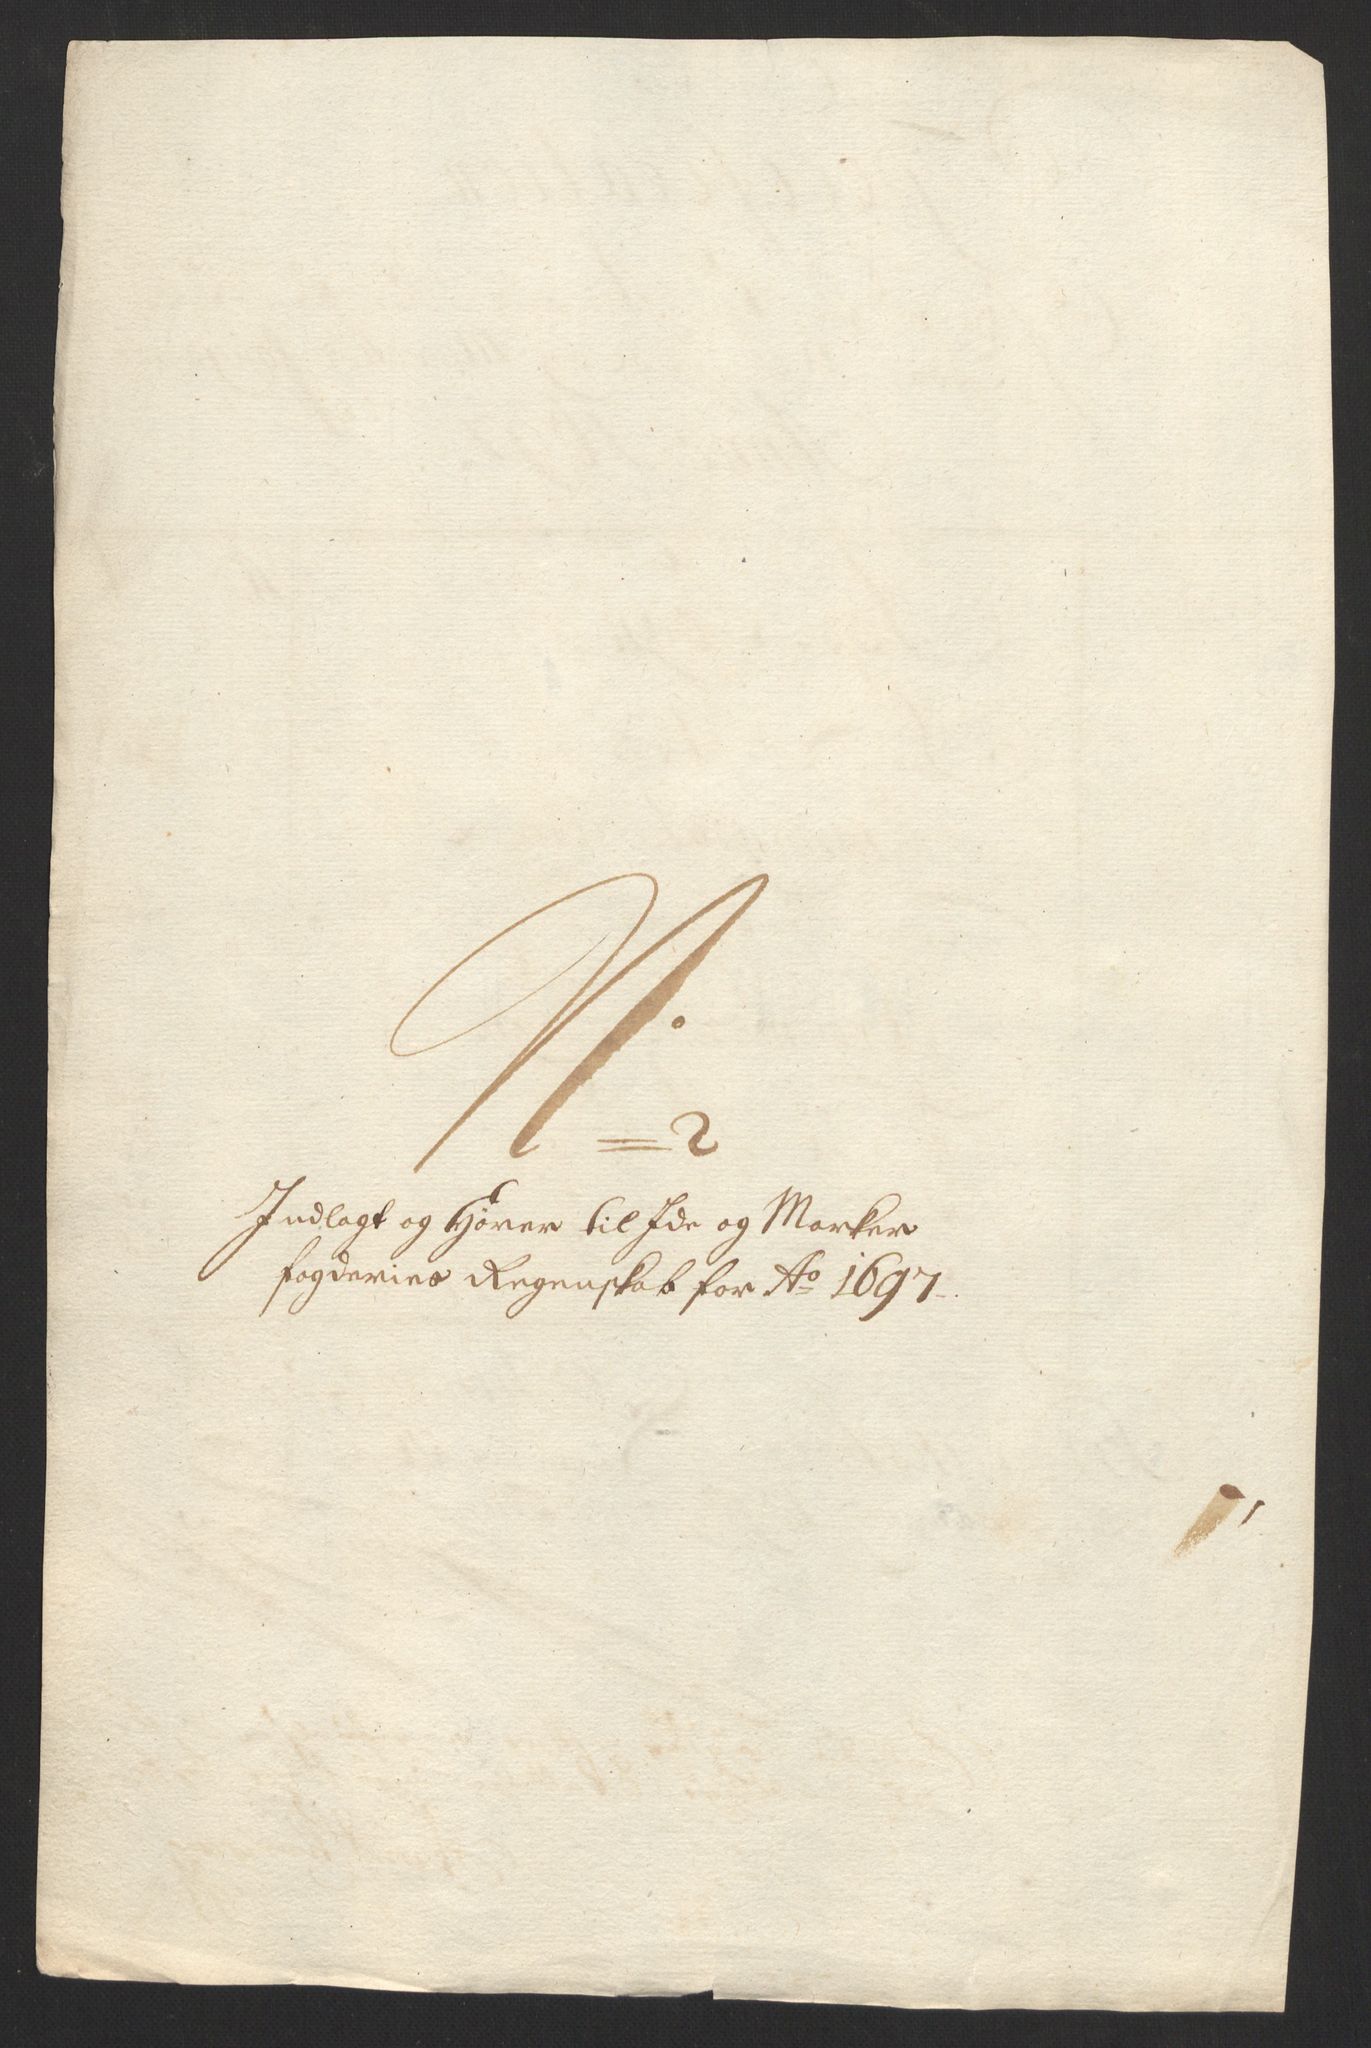 N.
2
Indlagt og Hører til Ide og Marker
fogderies Regenskab for Ao 1697